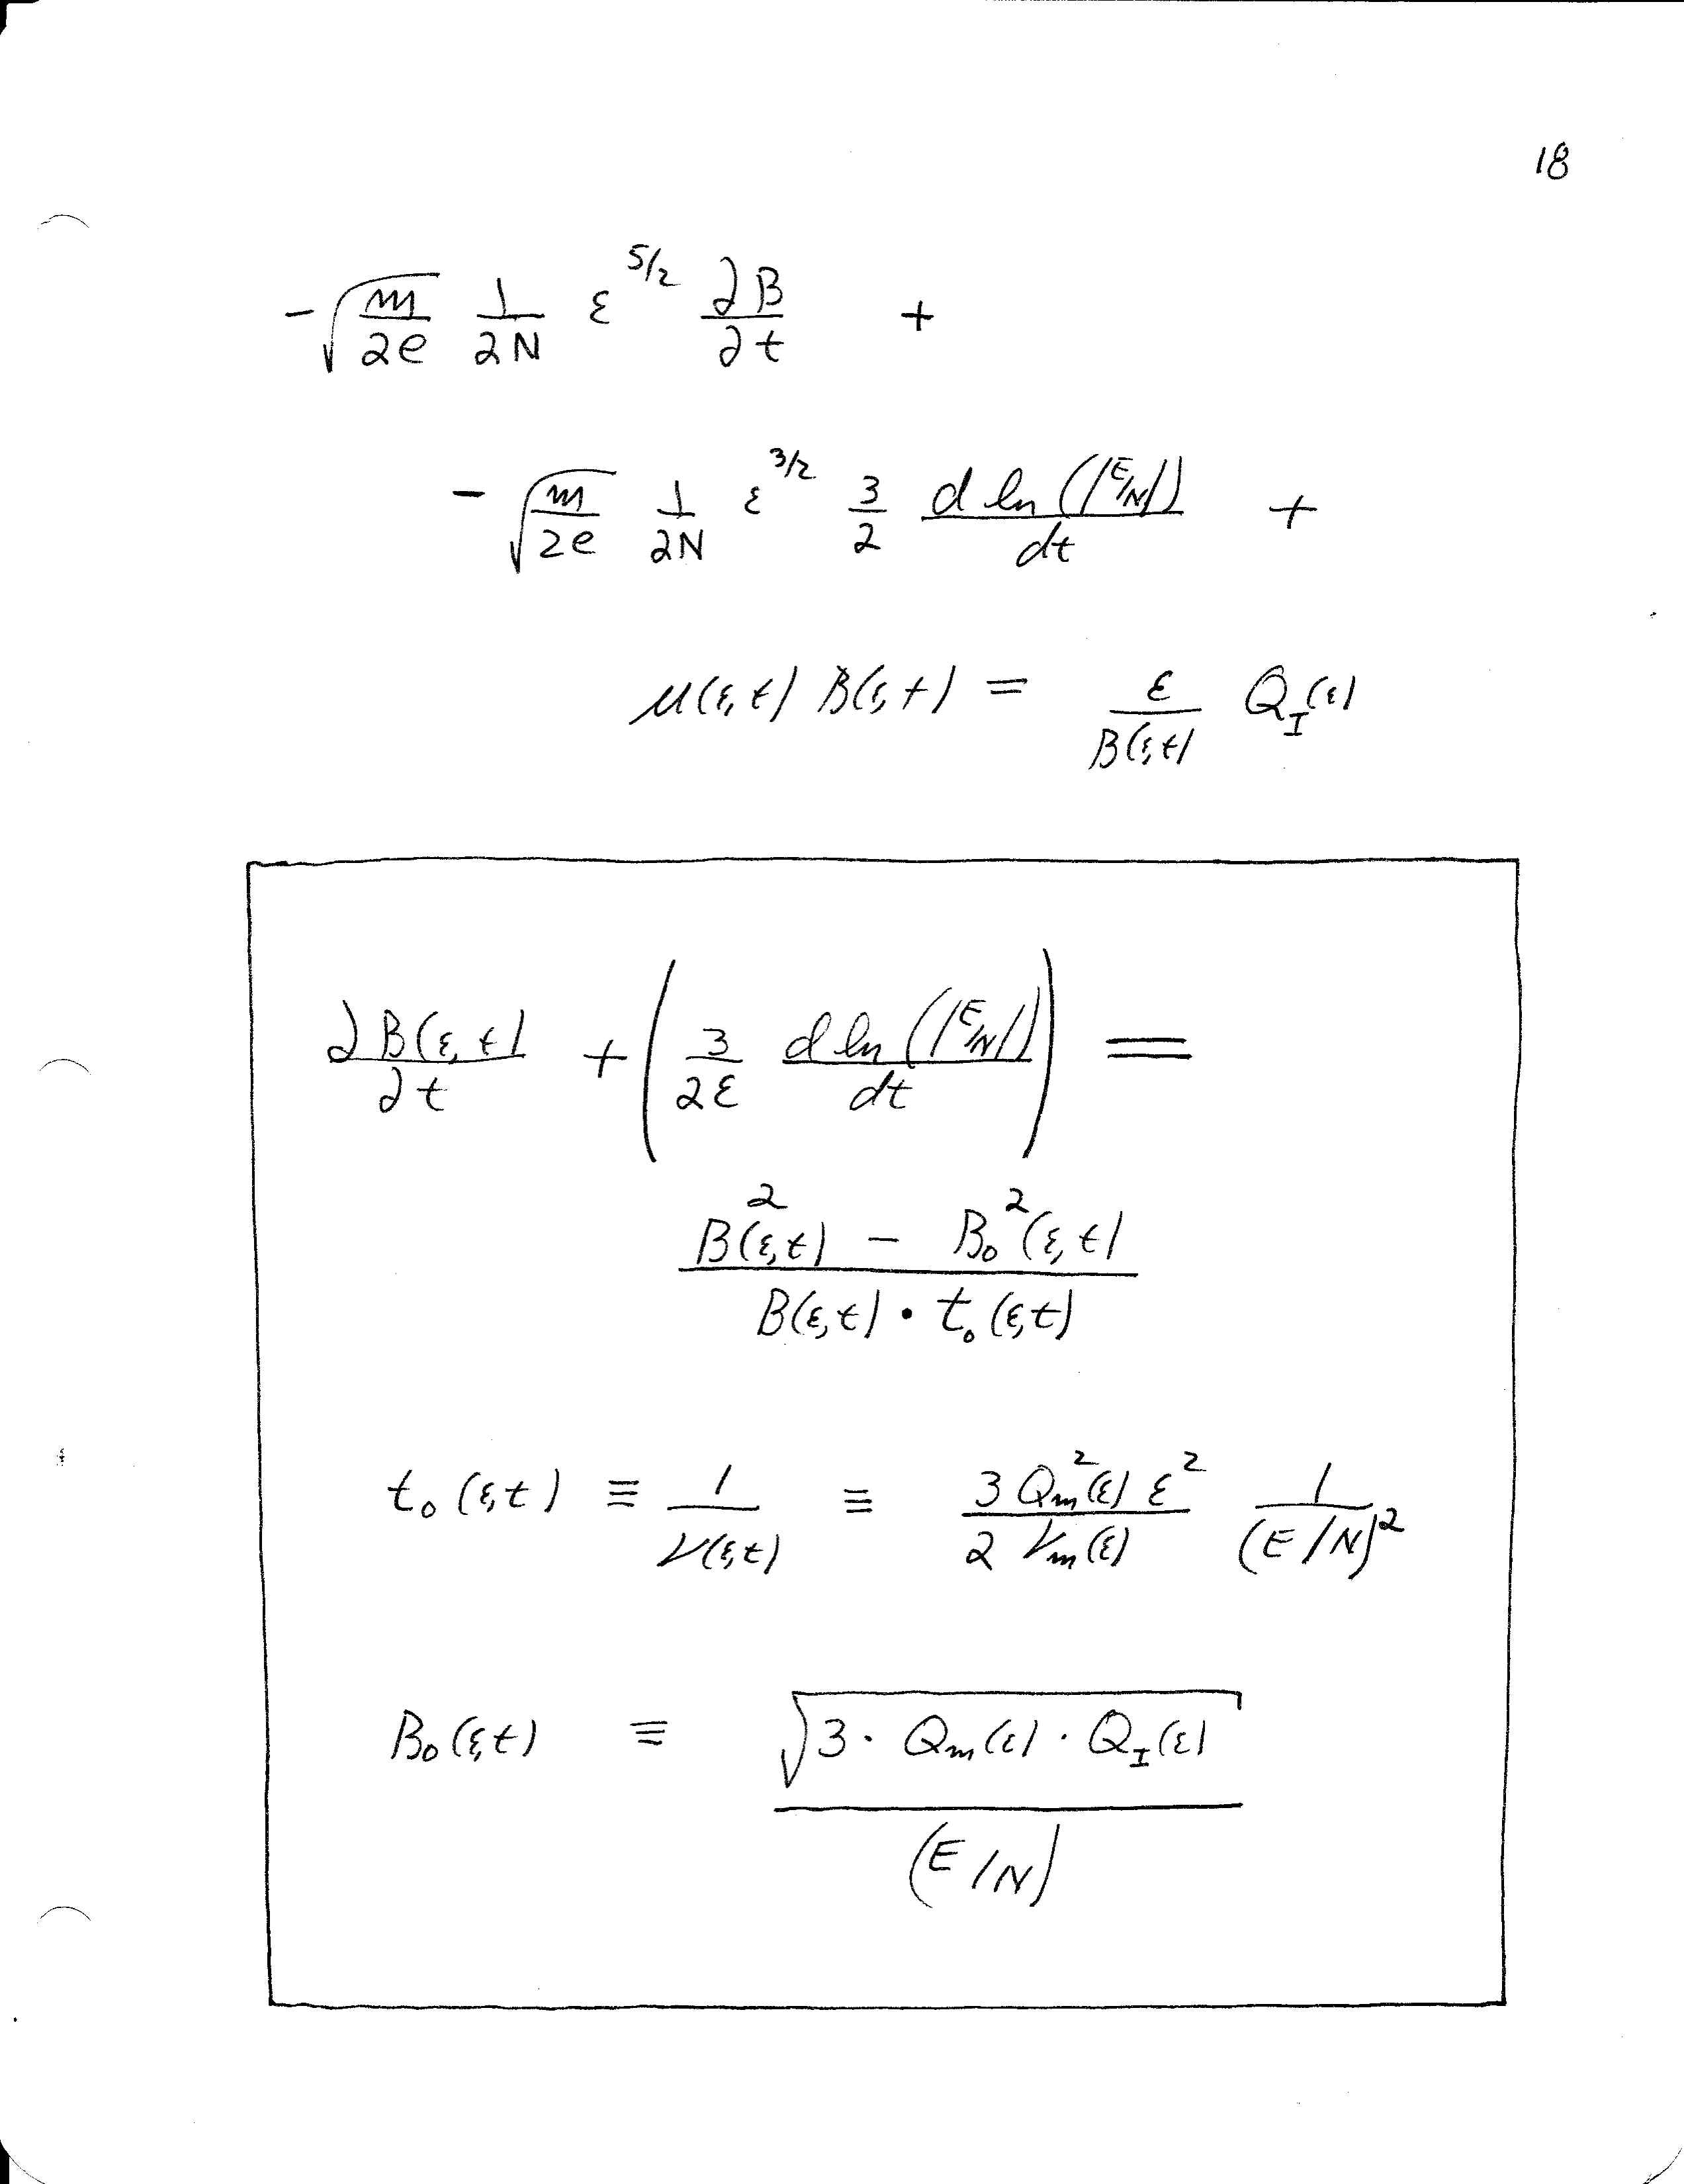 18
-√(m/2e) 1/2N ε^(5/2) ∂B/∂t +
-√(m/2e) 1/2N ε^(3/2) 3/2 d ln(|E/N|)/dt +
μ(ε,t) B(ε,t) = ε/B(ε,t) Q_I(ε)
∂B(ε,t)/∂t + (3/2ε d ln(|E/N|)/dt) =
(B²(ε,t) - B₀²(ε,t))/(B(ε,t) · t₀(ε,t))
t₀(ε,t) ≡ 1/ν(ε,t) ≡ 3Q_m²(ε) ε²/2ν_m(ε) 1/(E/N)²
B₀(ε,t) ≡ √(3 · Q_m(ε) · Q_I(ε))/(E/N)